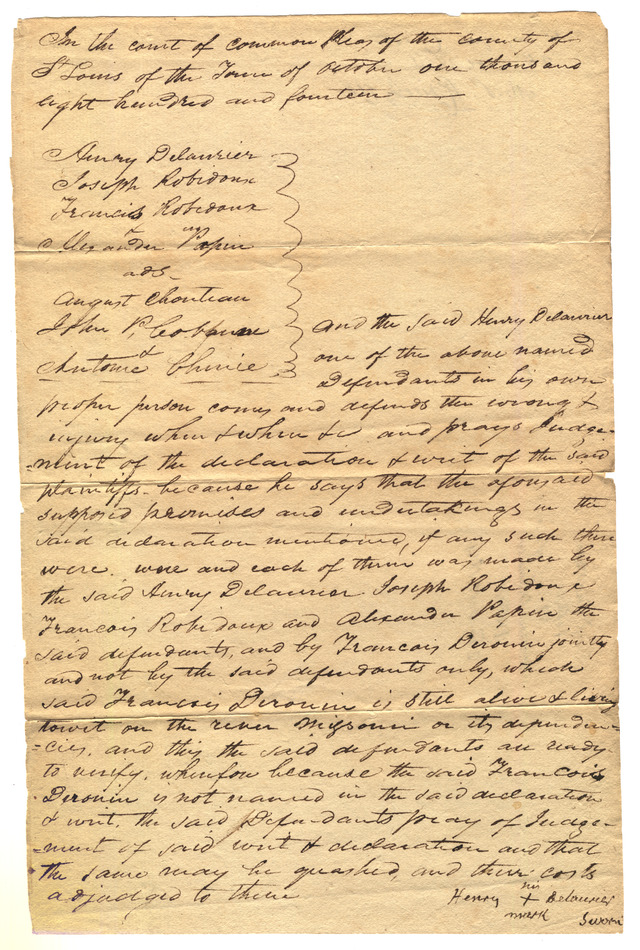 In the court of common Pleas of the county of
St Louis of the Term of October one thousand
eight hundred and fourteen
Henry Delaurier
Joseph Robidoux
Francis Robidoux
&
Alexander Papin
ads
August Chouteau
John P. Cobbune
&
Antoine Chinie
And the said Henry Delaurier
one of the above named
Defendants in his own
proper person comes and defends the wrong &
injury when & when &c and prays Judge-
-ment of the declaration & writ of the said
plaintiffs. because he says that the aforesaid
supposed promises and undertakings in the
said declaration mentioned, if any such there
were. were and each of them was made by
the said Henry Delaurier Joseph Robidoux
Francois Robidoux and Alexander Papin the
said defendants, and by Francois Derouin jointly
and not by the said defendants only, which
said Francois Derouin is still alive & living
towit on the river Missouri or its dependen-
-cies, and this the said defendants are ready
to verify. wherefore because the said Francois
Derouin is not named in the said declaration
& writ. the said Defendants pray of Judge-
-ment of said writ & declaration and that
the same may be quashed, and their costs
adjudged to them
his
Henry + Delaurier
mark
Sworn